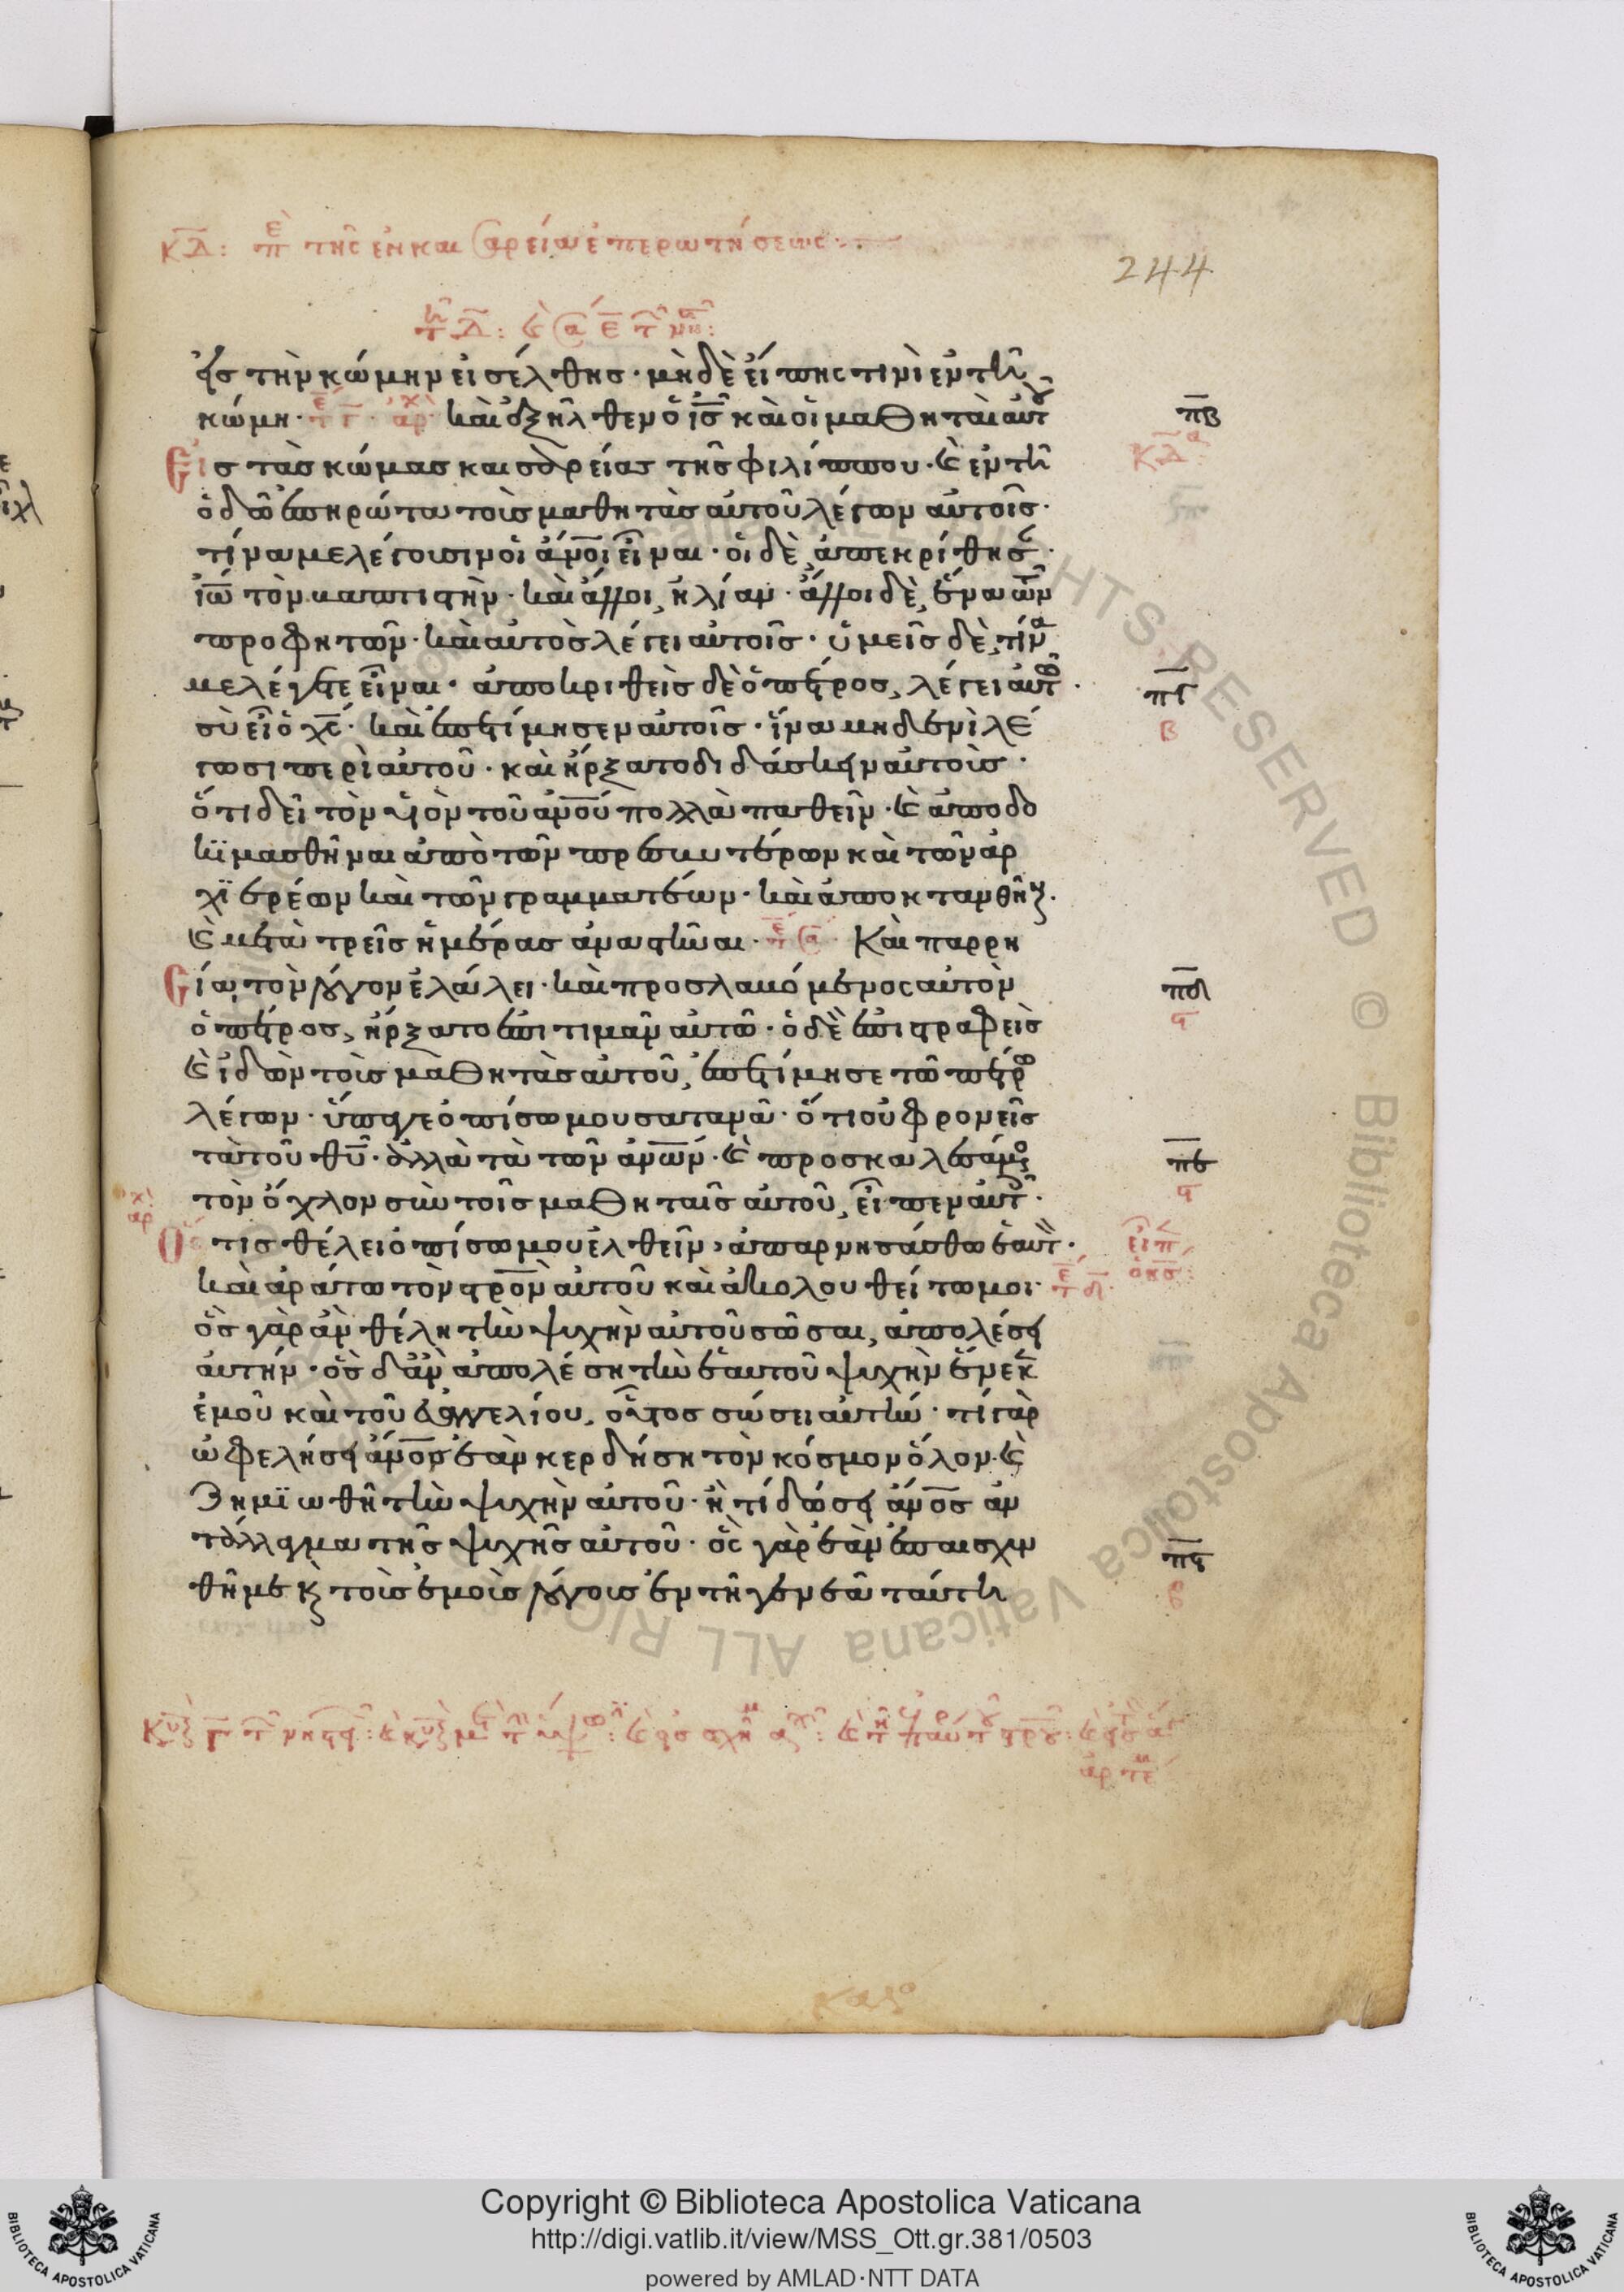 244
εἰς τὴν κώμην εἰσέλθης· μὴ δὲ εἴπης τινὶ ἐν τῆ
κώμη· καὶ ἐξῆλθεν ὁ ις καὶ οἱ μαθηταὶ αὐτοῦ
Εἰς τὰς κώμας καισαρείας τῆς φιλίππου· καὶ ἐν τῆ
ὁδῶ ἐπηρώτα τοὺς μαθητὰς αὐτοῦ λέγων αὐτοῖς·
τίνα με λέγουσιν οἱ ἀνοι εἶναι· οἱ δὲ ἀπεκρίθησ·
ἰω τὸν βαπτιστὴν· καὶ ἄλλοι, ἠλίαν· ἄλλοι δὲ, ἕνα τῶν
προφητῶν· καὶ αὐτὸς λέγει αὐτοῖς· ὑμεῖς δὲ, τίνα
με λέγετε εἶναι· ἀποκριθεὶς δὲ ὁ πέτρος, λέγει αὐτῶ·
σὺ εἶ ὁ χς· καὶ ἐπετίμησεν αὐτοῖς· ἵνα μηδενὶ λέ
γωσι περὶ αὐτοῦ· καὶ ἤρξατο διδάσκειν αὐτοὺς·
ὅτι δεῖ τὸν υἱὸν τοῦ ἀνου πολλὰ παθεῖν· καὶ ἀποδο
κιμασθῆναι ἀπὸ τῶν πρεσβυτέρων καὶ τῶν ἀρ
χιερέων καὶ τῶν γραμματέων· καὶ ἀποκτανθῆναι·
καὶ μετὰ τρεῖς ἡμέρας ἀναστῆναι· Καὶ παρρη
Cία τὸν λόγον ἐλάλει· καὶ προσλαβόμενος αὐτὸν
ὁ πέτρος, ἤρξατο ἐπιτιμᾶν αὐτῶ· ὁ δὲ ἐπιστραφεὶς
καὶ ἰδὼν τοὺς μαθητὰς αὐτοῦ, ἐπετίμησε τῶ πέτρω
λέγων· ὕπαγε ὀπίσω μου σατανᾶ· ὅτι οὐ φρονεῖς
τὰ τοῦ θυ· ἀλλὰ τὰ τῶν ἀνων· καὶ προσκαλεσάμενος
τὸν ὄχλον σὺν τοῖς μαθηταῖς αὐτοῦ, εἶπεν αὐτοῖς·
Ὅστις θέλει ὀπίσω μου ἐλθεῖν, ἀπαρνησάσθω ἑαυτὸν·
καὶ ἀράτω τὸν στρον αὐτοῦ καὶ ἀκολουθείτω μοι·
ὃς γὰρ ἂν θέλη τὴν ψυχὴν αὐτοῦ σῶσαι, ἀπολέσει
αὐτήν· ὃς δ' ἂν ἀπολέση τὴν ἑαυτοῦ ψυχὴν ἕνεκεν
ἐμοῦ καὶ τοῦ εὐαγγελίου, οὗτος σώσει αὐτὴν· τί γὰρ
ὠφελήσει ἀνον ἐὰν κερδήση τὸν κόσμον ὅλον· καὶ
ζημιωθῆ τὴν ψυχὴν αὐτοῦ· ἢ τί δώσει ἀνος ἀν
τάλλαγμα τῆς ψυχῆς αὐτοῦ· ὃς γὰρ ἐὰν ἐπαισχυν
θῆ με καὶ τοὺς ἐμοὺς λόγους ἐν τῆ γενεᾶ ταύτη
πβ
πγ
β
πδ
πε
πϛ
Copyright © Biblioteca Apostolica Vaticana
http://digi.vatlib.it/view/MSS_Ott.gr.381/0503
powered by AMLAD·NTT DATA
BIBLIOTECA APOSTOLICA VATICANA
BIBLIOTECA APOSTOLICA VATICANA